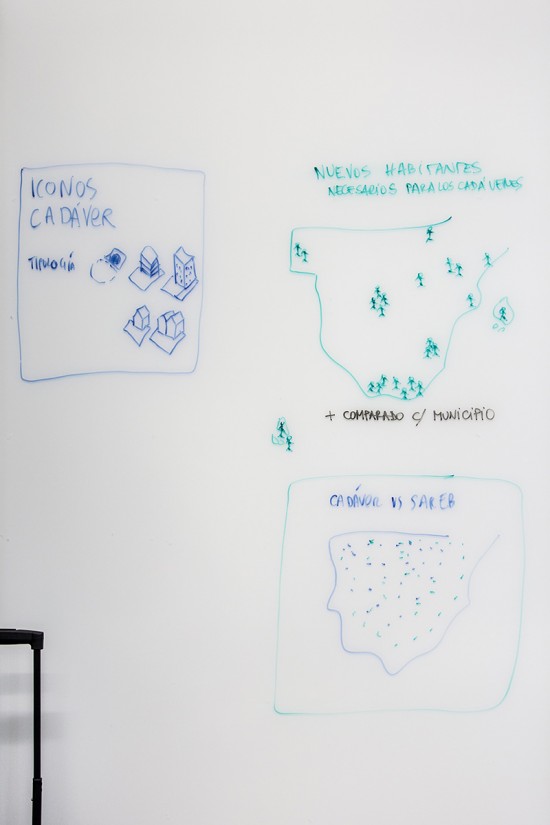 ICONOS
CADÁVER
TIPOLOGÍA
NUEVOS HABITANTES
NECESARIOS PARA LOS CADÁVERES
+ COMPARADO C/ MUNICIPIO
CADÁVER VS SAREB